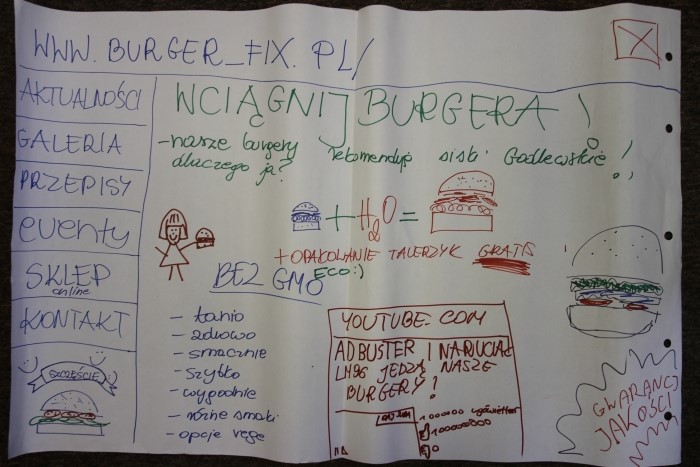 WWW.BURGER_FIX.PL/
AKTUALNOŚCI
GALERIA
PRZEPISY
eventy
SKLEP
online
KONTAKT
SZCZĘŚCIE
WCIĄGNIJ BURGERA!
- nasze burgery rekomendują siostki Godlewskie!
dlaczego ja?
+ H2O =
+ OPAKOWANIE TALERZYK GRATIS
ECO:)
BEZ GMO
- tanio
- zdrowo
- smacznie
- szybko
- wygodnie
- różne smaki
- opcje vege
YOUTUBE.COM
ADBUSTER I NARUCIAK
LM96 JEDZĄ NASZE
BURGERY!
100000
10000000
0
GWARANCJ
JAKOŚCI